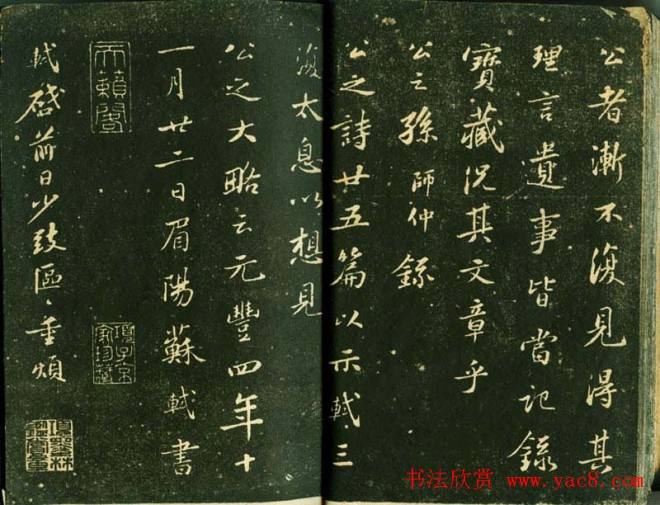 公者漸不復見得其
理言遺事皆當記錄
寶藏況其文章乎
公之孫師仲錄
公之詩廿五篇以示軾三
復太息以想見
公之大略云元豐四年十
一月廿二日眉陽蘇軾書
天籟閣
項子京家珍藏
軾啓前日少致區〻重煩
書法欣賞 www.yac8.com